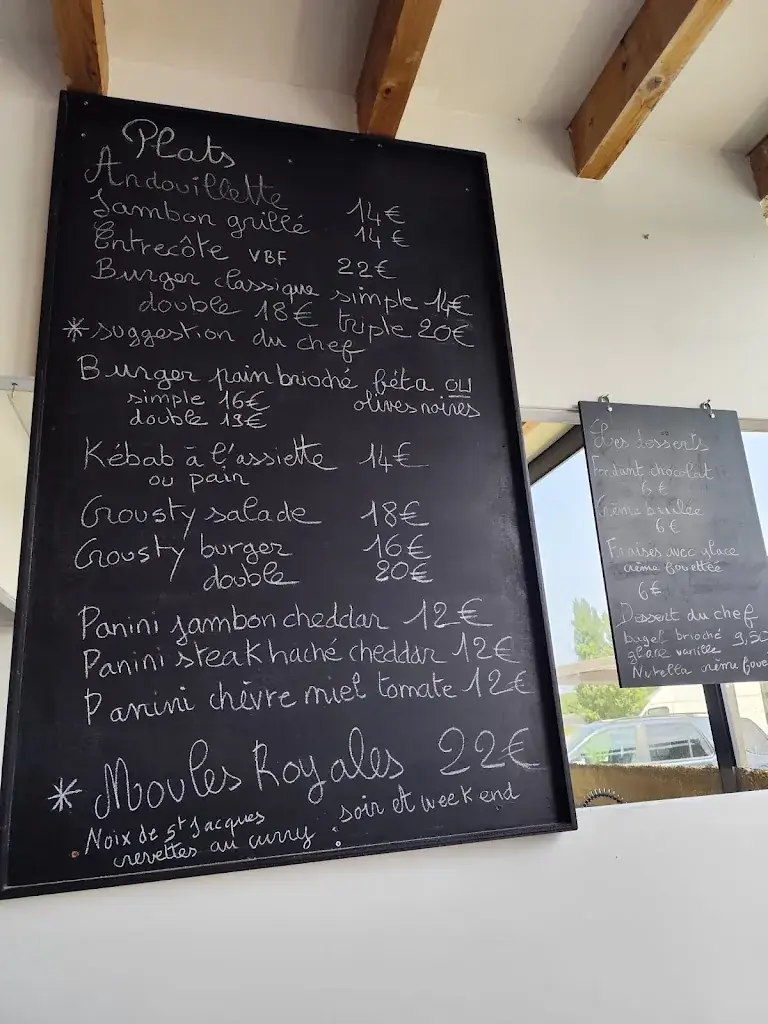 Plats
Andouillette 14€
Jambon grillé 14€
Entrecôte VBF 22€
Burger classique simple 14€
double 18€ triple 20€
* suggestion du chef
Burger pain brioché féta ou
simple 16€ olives noires
double 19€
Kébab à l'assiette 14€
ou pain
Crousty salade 18€
Crousty burger 16€
double 20€
Panini jambon cheddar 12€
Panini steak haché cheddar 12€
Panini chèvre miel tomate 12€
* Moules Royales 22€
Noix de St Jacques soir et week end
crevettes au curry
Les desserts
Fondant chocolat
6€
Crème brûlée
6€
Fraises avec glace
crème fouettée
6€
Dessert du chef
bagel brioché 9,50
glace vanille
Nutella crème foue